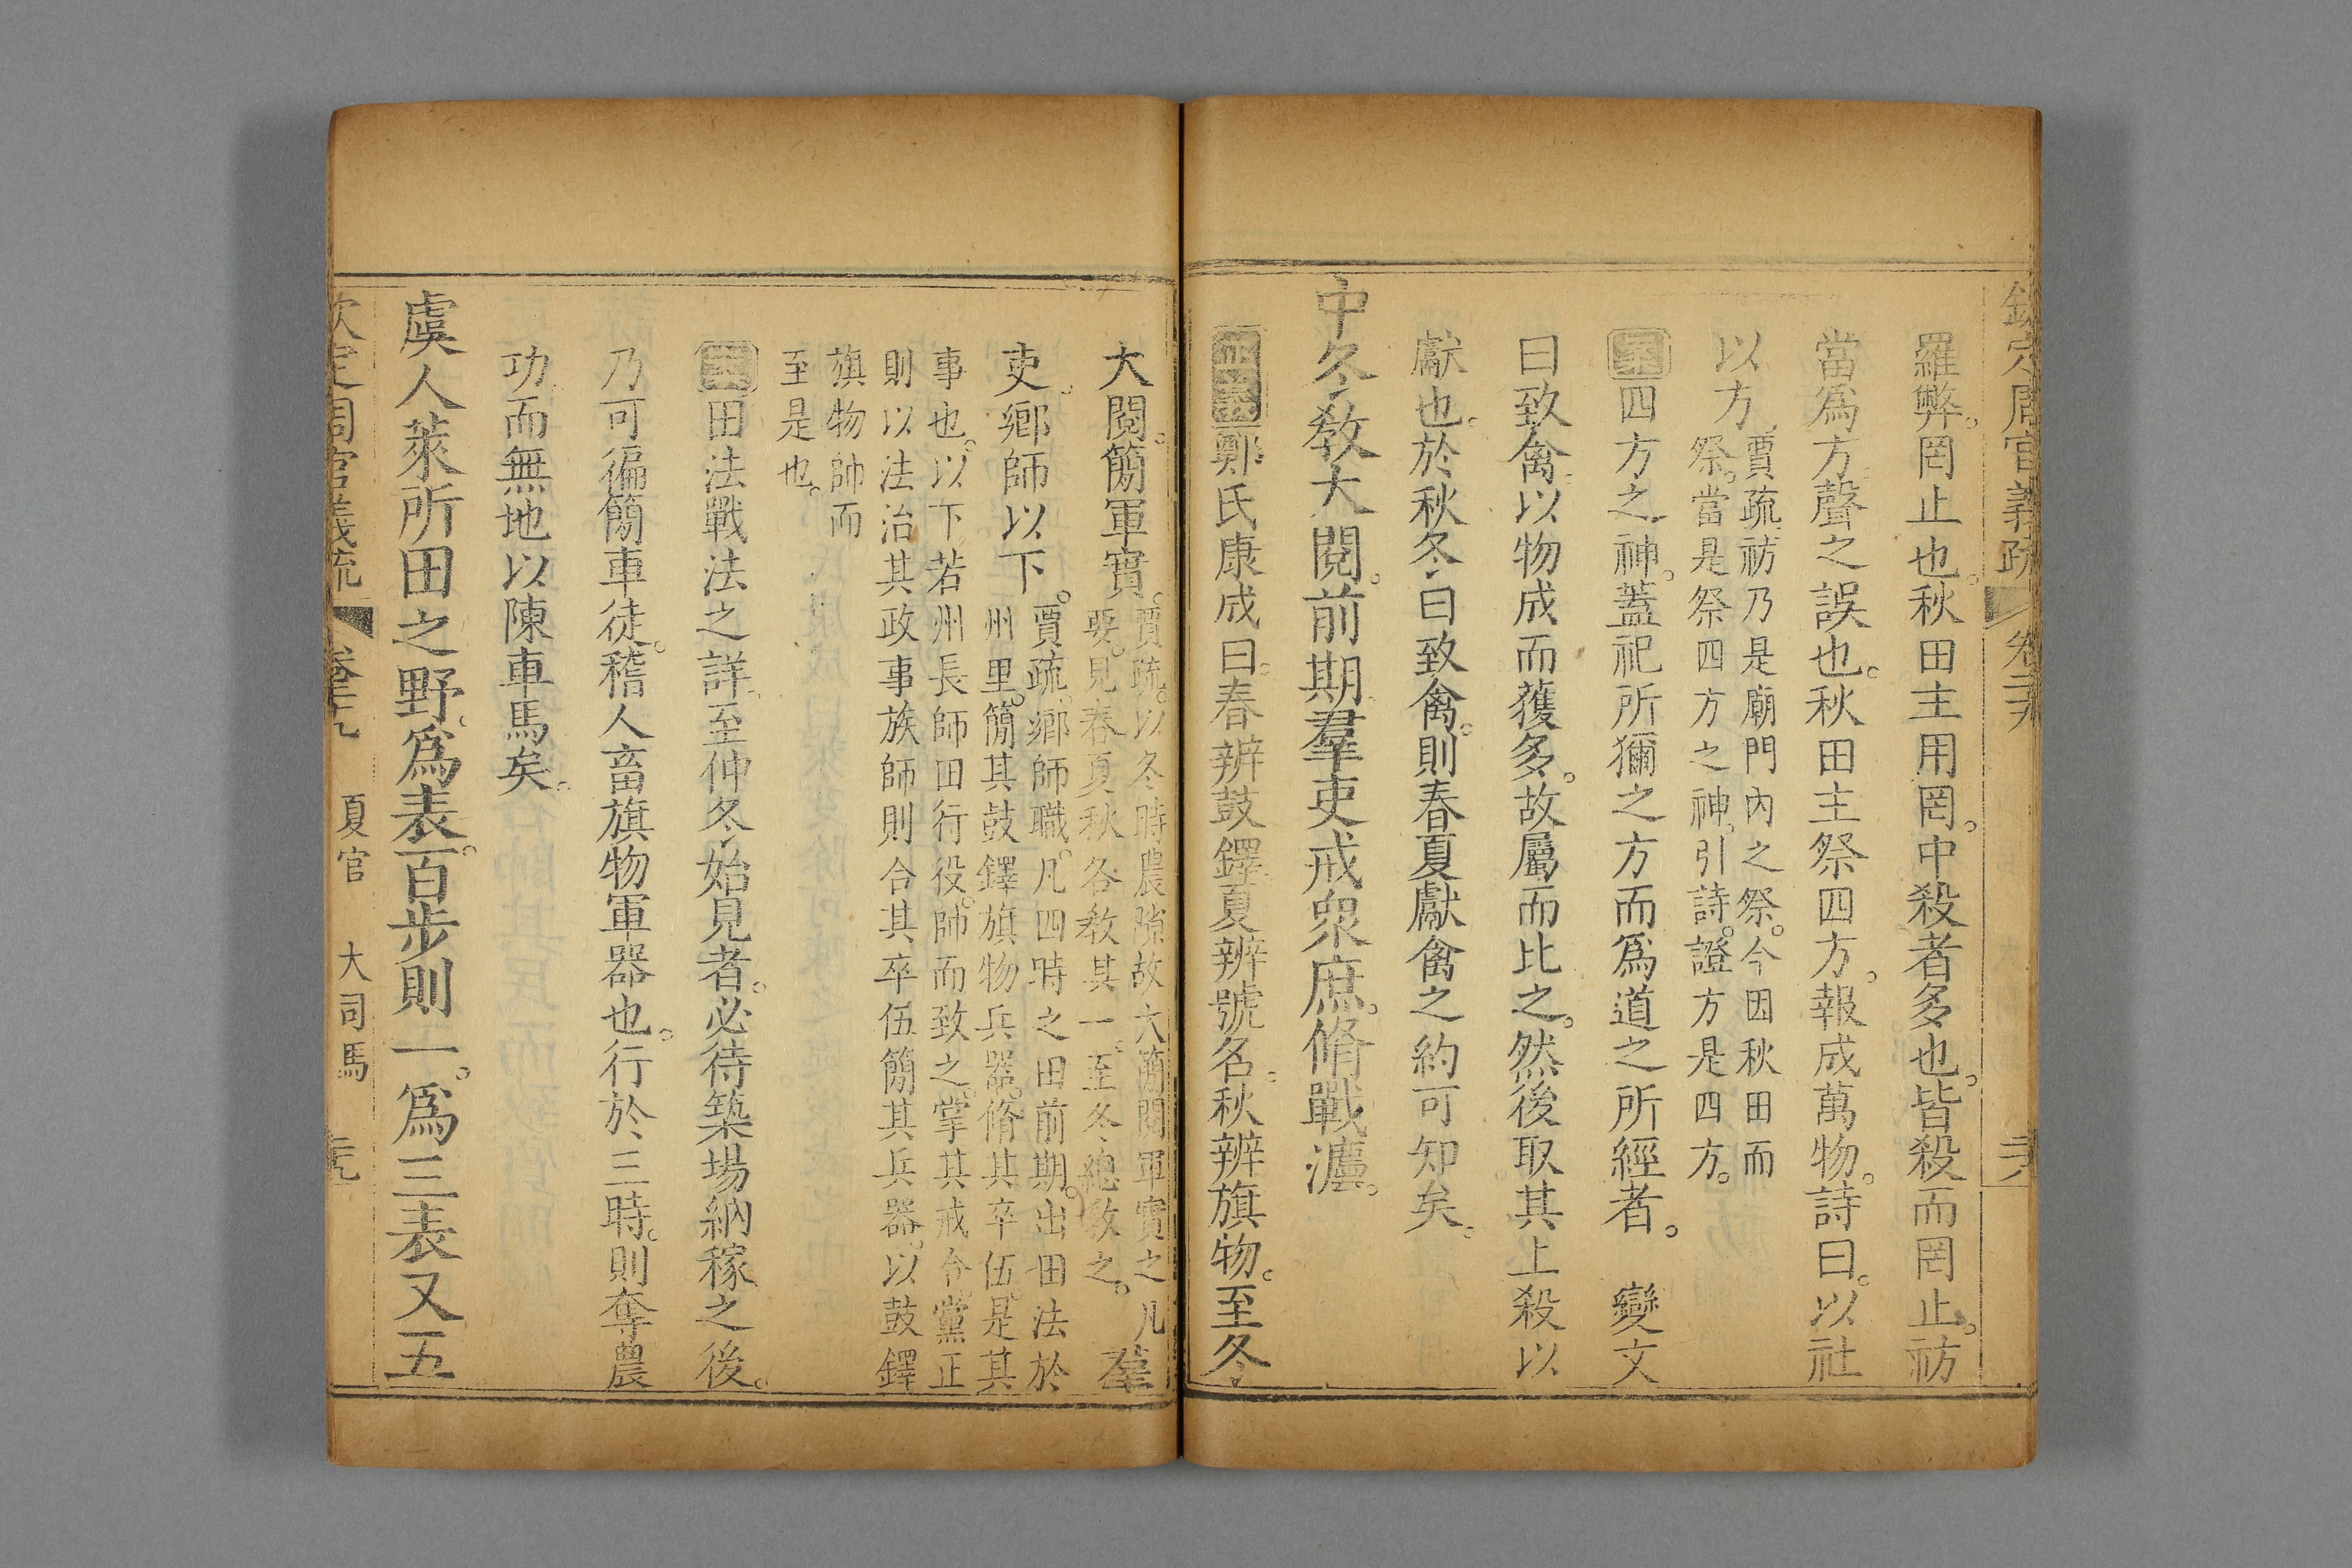 欽定周官義疏 卷二十九 二十八
羅弊。罔止也。秋田主用罔。中殺者多也。皆殺而罔止。祊
當爲方聲之誤也。秋田主祭四方。報成萬物。詩曰。以社
以方。
賈疏。祊乃是廟門內之祭。今因秋田而
祭。當是祭四方之神。引詩。證方是四方。
案四方之神。蓋祀所獮之方而爲道之所經者。 變文
曰致禽以物成而獲多。故屬而比之。然後取其上殺以
獻也。於秋冬曰致禽。則春夏獻禽之約可知矣。
中冬教大閱。前期羣吏戒衆庶。脩戰灋。
正義鄭氏康成曰。春辨鼓鐸夏辨號名。秋辨旗物。至冬
大閱。簡軍實。
賈疏。以冬時農隙故大簡閱軍實之凡
要。見春夏秋各敎其一。至冬總敎之。
羣
吏。鄉師以下。
賈疏。鄉師職。凡四時之田前期。出田法於
州里。簡其鼓鐸旗物兵器。脩其卒伍。是其
事也。以下若州長師田行役。師而致之。掌其戒令。黨正
則以法治其政事族師則合其卒伍簡其兵器。以鼓鐸
旗物帥而
至是也。
案田法戰法之詳。至仲冬始見者。必待築場納稼之後。
乃可徧簡車徒。稽人畜旗物軍器也。行於三時。則奪農
功而無地以陳車馬矣。
虞人萊所田之野。爲表。百步則一。爲三表又五
欽定周官義疏 卷二十九 夏官 大司馬 二十九